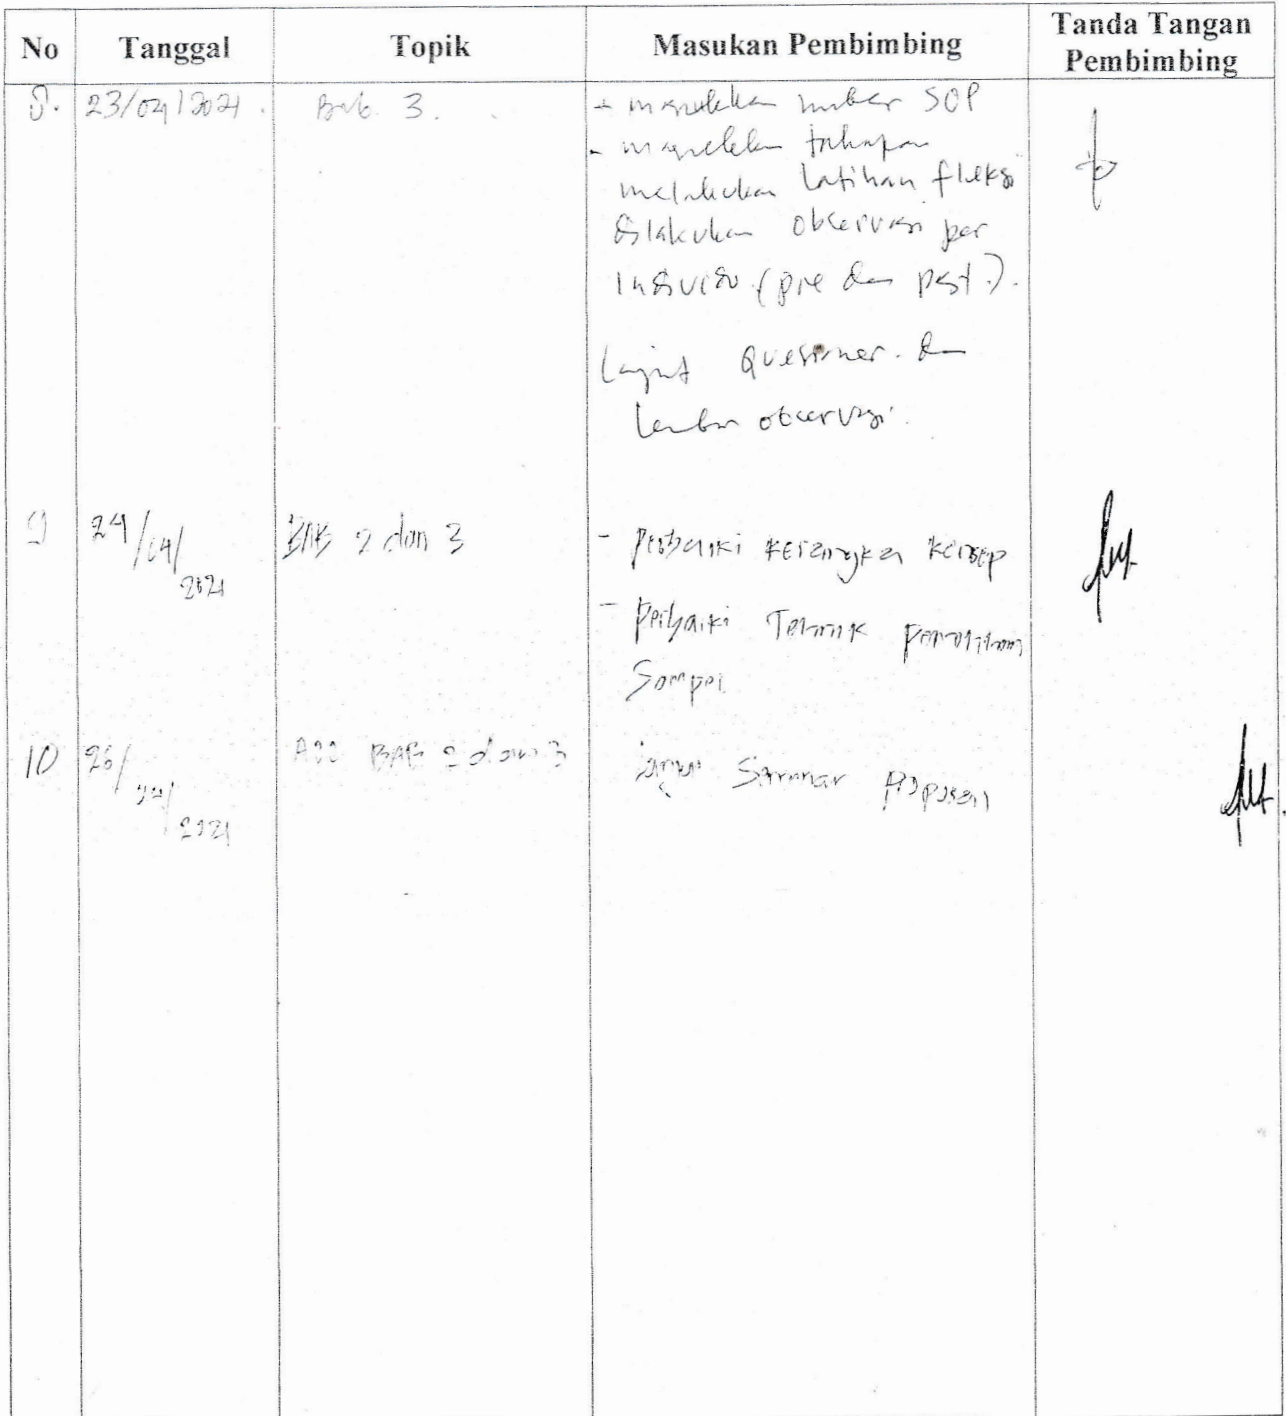 No Tanggal Topik Masukan Pembimbing Tanda Tangan Pembimbing
8. 23/04/2021. Bab 3. SOP
-
melakukan latihan fleksi
dilakukan observasi per
individu (pre dan post).
Lanjut Quesioner. dan
lembar observasi.
9 24/04/2021 BAB 2 dan 3 - perbaiki kerangka konsep
- perbaiki Teknik pemilihan
Sampel
10 26/04/2021 ACC BAB 2 dan 3 Seminar proposal